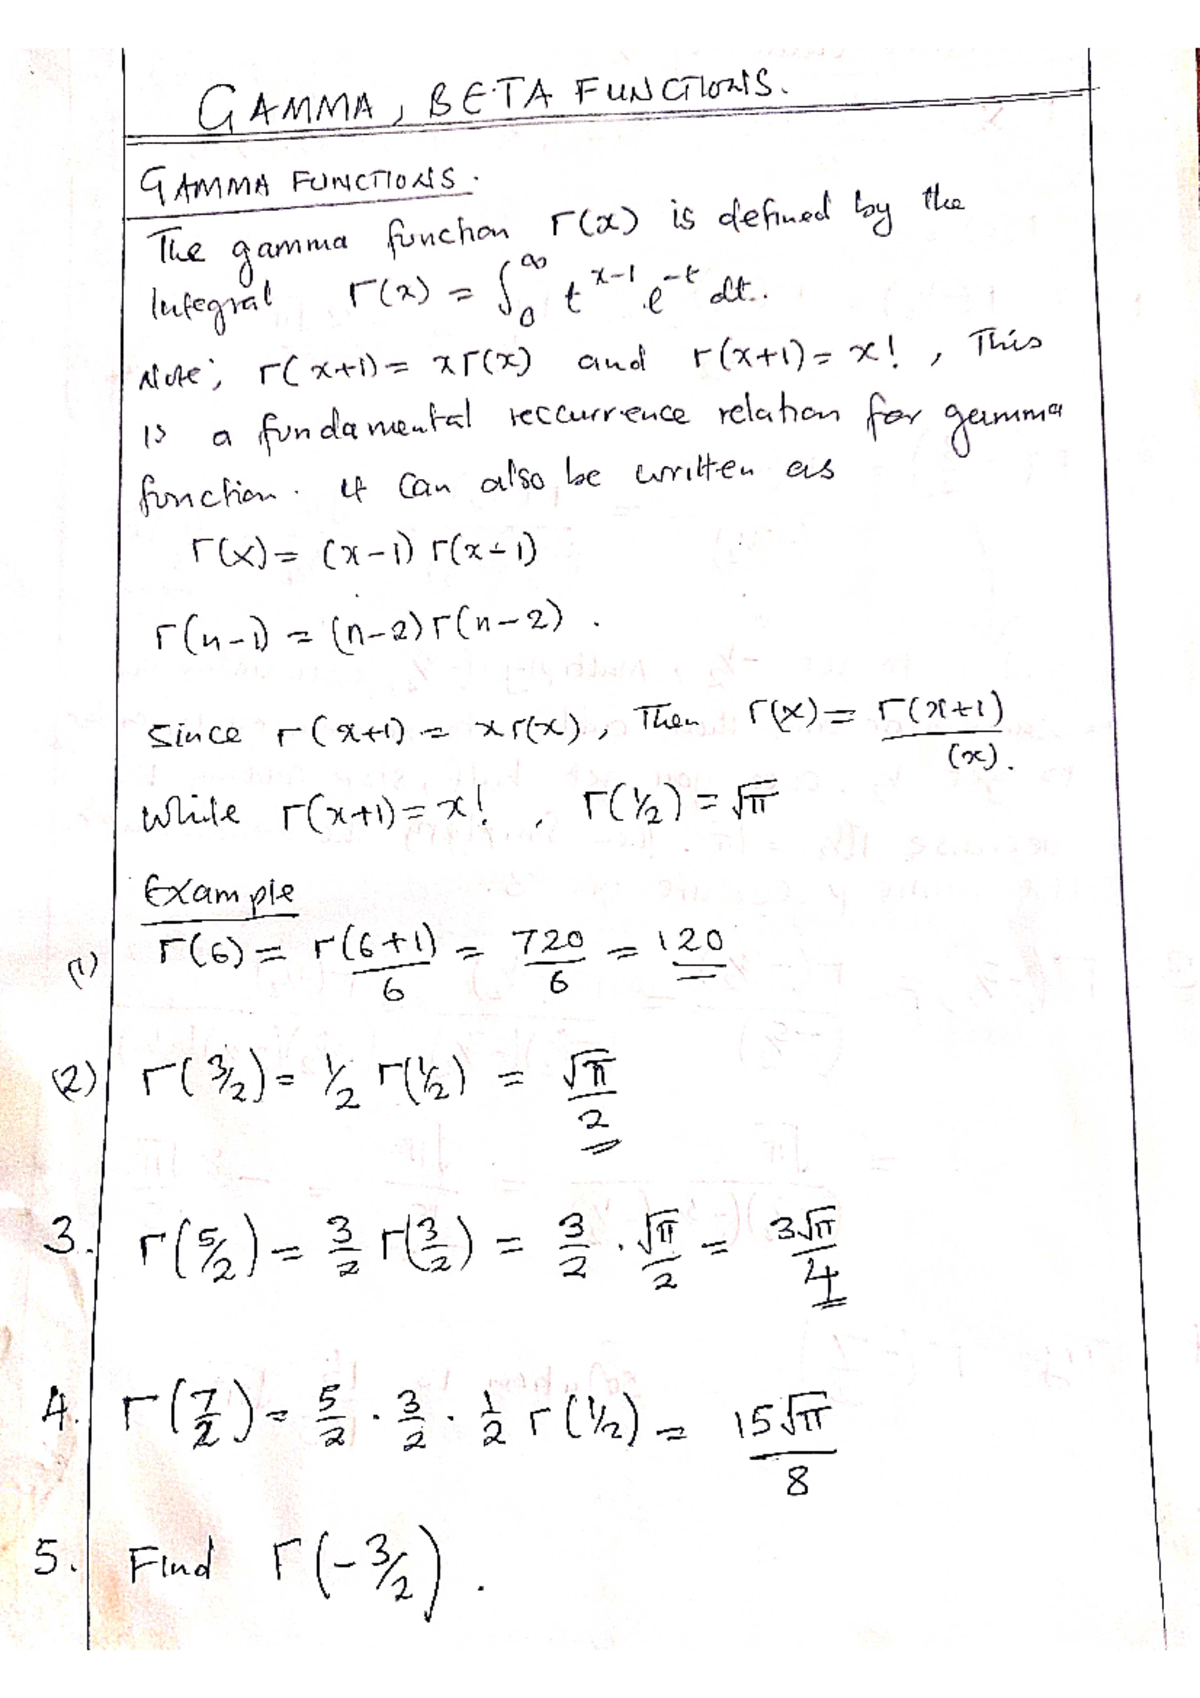 GAMMA, BETA FUNCTIONS.
GAMMA FUNCTIONS.
The gamma function Γ(x) is defined by the
Integral Γ(x) = ∫₀^∞ t^(x-1) e^(-t) dt.
Note; Γ(x+1) = xΓ(x) and Γ(x+1) = x! , This
is a fundamental reccurrence relation for gamma
function. It can also be written as
Γ(x) = (x-1) Γ(x-1)
Γ(n-1) = (n-2)Γ(n-2).
Since Γ(x+1) = xΓ(x), Then Γ(x) = Γ(x+1)/(x).
While Γ(x+1) = x! , Γ(½) = √π
Example
(1) Γ(6) = Γ(6+1)/6 = 720/6 = 120
(2) Γ(3/2) = ½ Γ(½) = √π/2
3. Γ(5/2) = 3/2 Γ(3/2) = 3/2 . √π/2 = 3√π/4
4. Γ(7/2) = 5/2 . 3/2 . 1/2 Γ(½) = 15√π/8
5. Find Γ(-3/2).